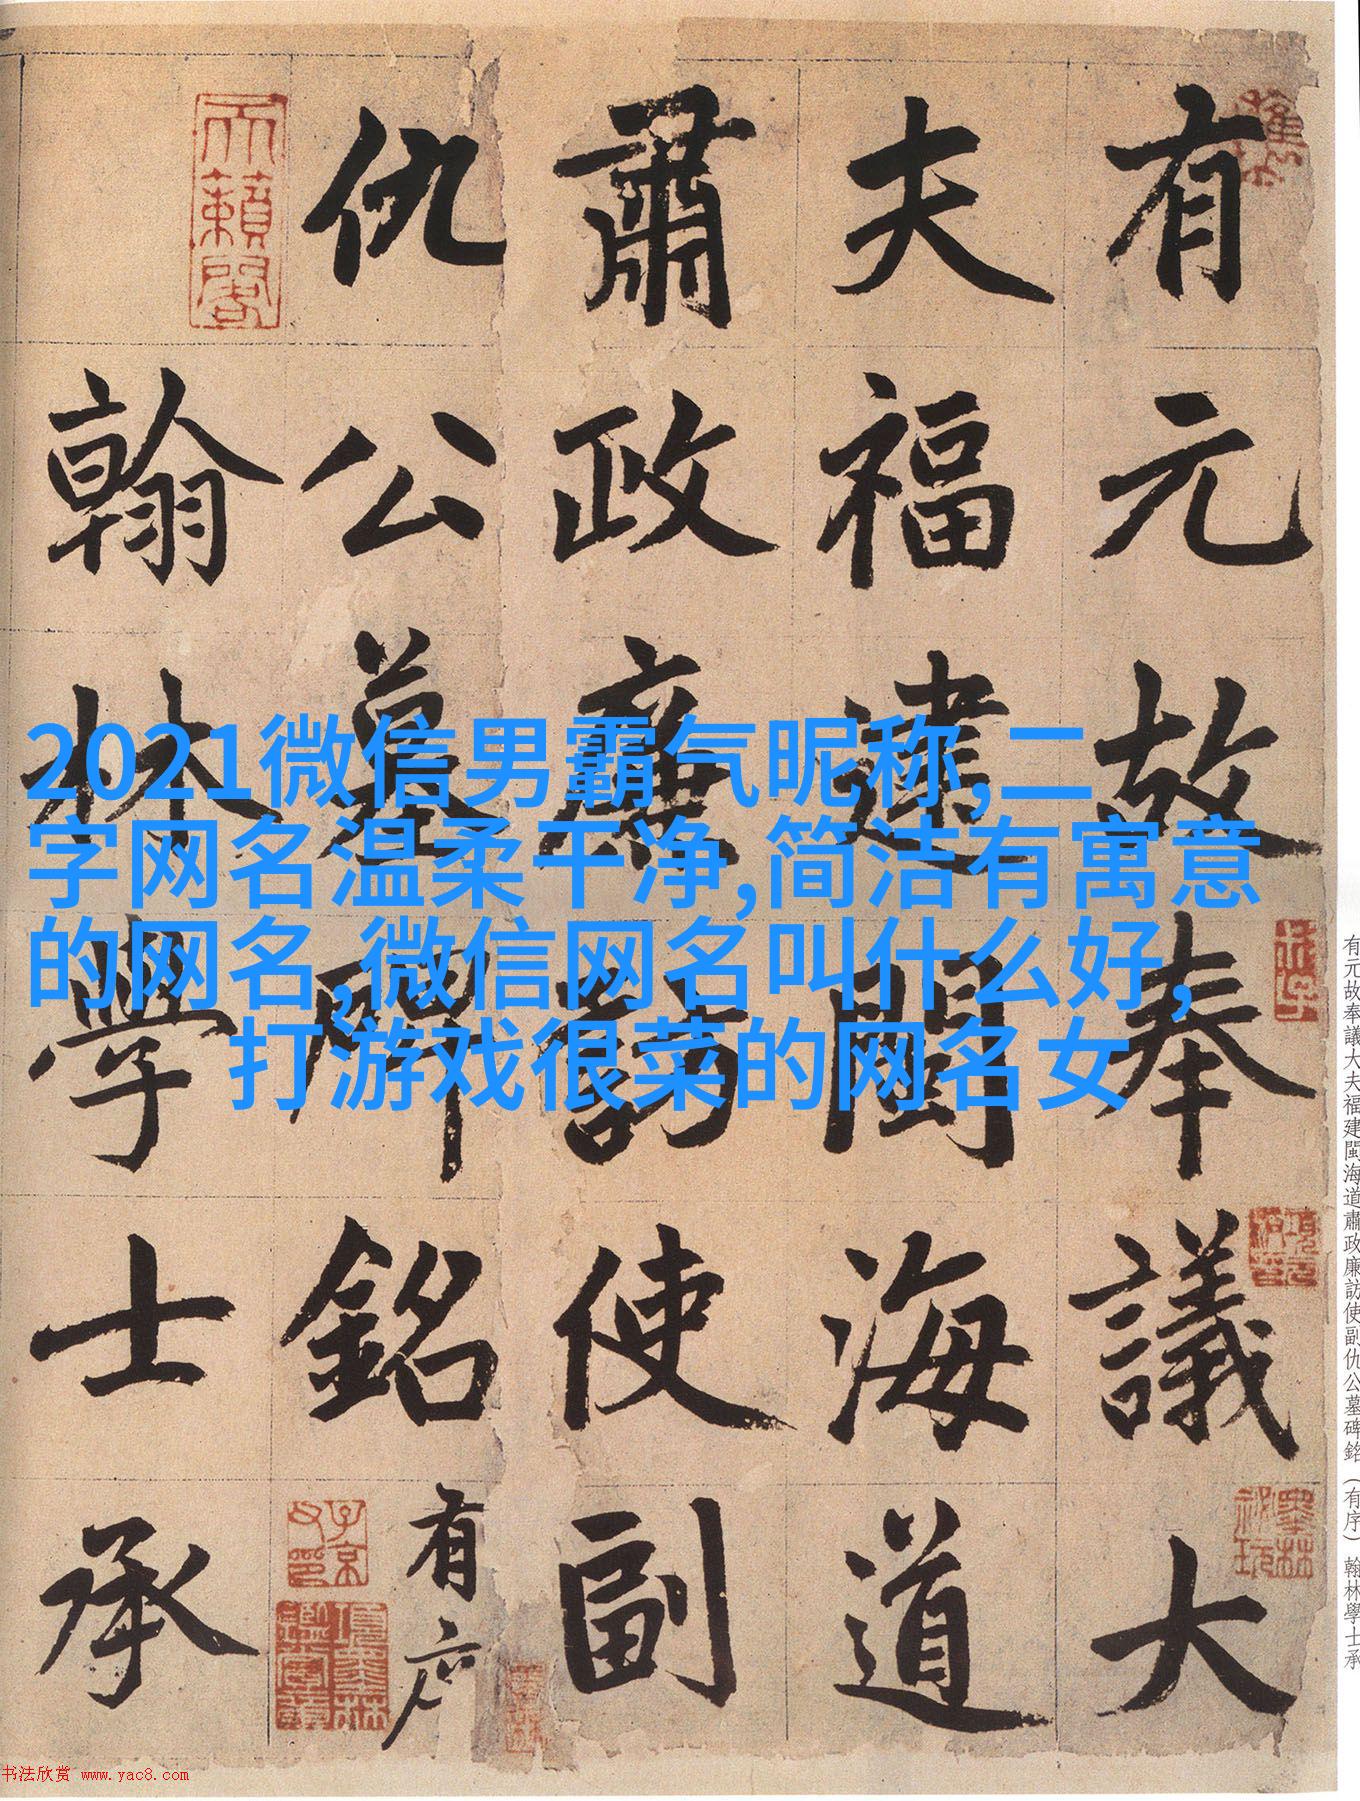 2021微信男霸气昵称,二
字网名温柔干净,简洁有寓意
的网名,微信网名叫什么好,
打游戏很菜的网名女
有元故奉議大
夫福建閩海道
肅政廉訪使副
仇公墓碑銘有序
翰林學士承
有元故奉議大夫福建閩海道肅政廉訪使副仇公墓碑銘（有序）翰林學士承
天籟閣
子京父印
书法欣赏 www.yac8.com